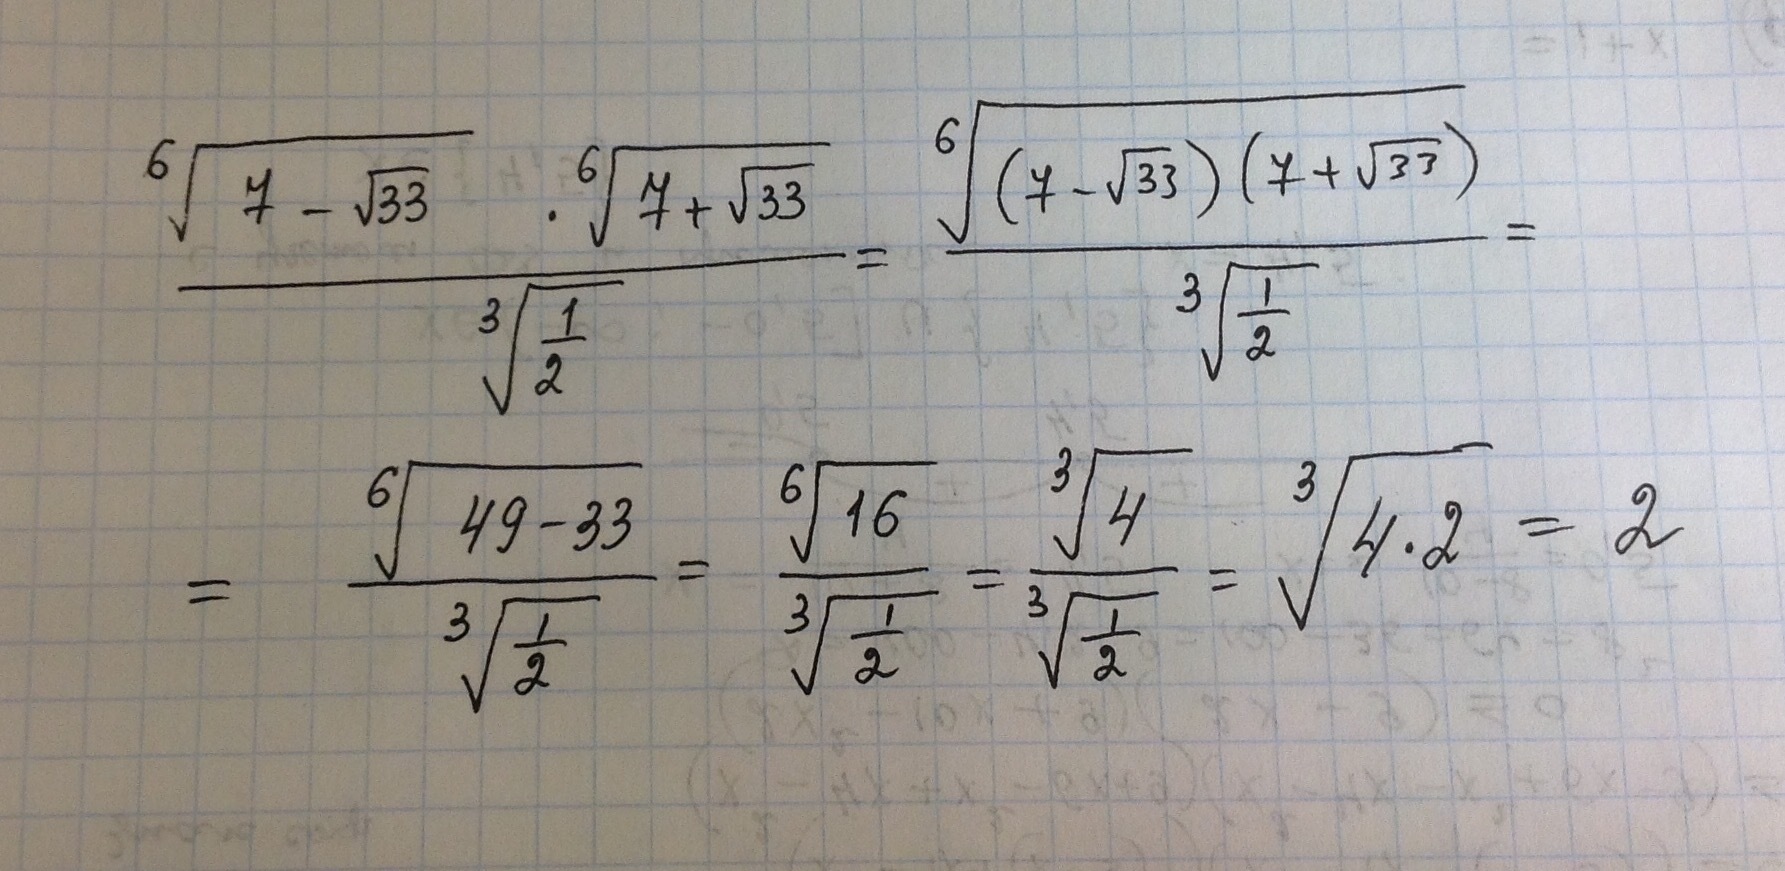 \frac{\sqrt[6]{7-\sqrt{33}} \cdot \sqrt[6]{7+\sqrt{33}}}{\sqrt[3]{\frac{1}{2}}} = \frac{\sqrt[6]{(7-\sqrt{33})(7+\sqrt{33})}}{\sqrt[3]{\frac{1}{2}}} =
= \frac{\sqrt[6]{49-33}}{\sqrt[3]{\frac{1}{2}}} = \frac{\sqrt[6]{16}}{\sqrt[3]{\frac{1}{2}}} = \frac{\sqrt[3]{4}}{\sqrt[3]{\frac{1}{2}}} = \sqrt[3]{4 \cdot 2} = 2